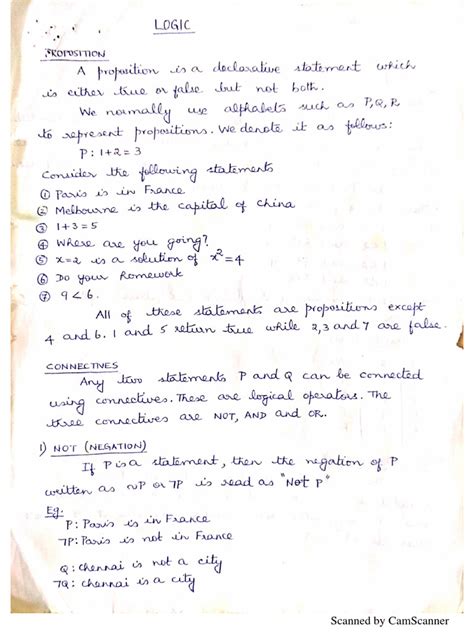 LOGIC
PROPOSITION
A proposition is a declarative statement which
is either true or false but not both.
We normally use alphabets such as P, Q, R
to represent propositions. We denote it as follows:
P: 1+2=3
Consider the following statements
① Paris is in France
② Melbourne is the capital of China
③ 1+3=5
④ Where are you going?
⑤ x=2 is a solution of x²=4
⑥ Do your homework
⑦ 9<6.
All of these statements are propositions except
4 and 6. 1 and 5 return true while 2,3 and 7 are false.
CONNECTIVES
Any two statements P and Q can be connected
using connectives. These are logical operators. The
three connectives are NOT, AND and OR.
1) NOT (NEGATION)
If P is a statement, then the negation of P
written as ~P or ¬P is read as "Not P"
Eg:
P: Paris is in France
¬P: Paris is not in France
Q: Chennai is not a city
¬Q: Chennai is a city
Scanned by CamScanner